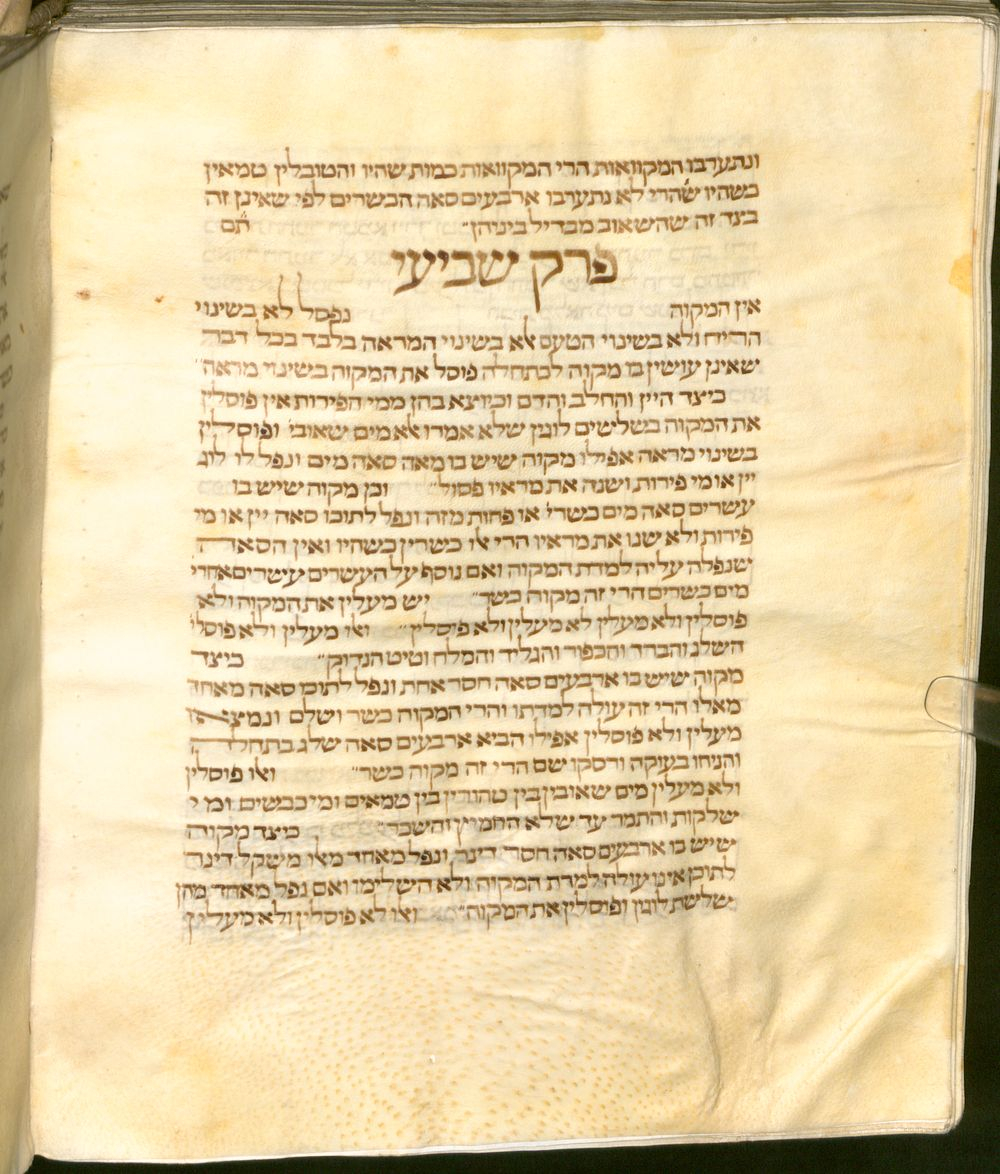 ונתערבו המקוואות הרי המקוואות כמות שהיו והטובלין טמאין
כשהיו שהרי לא נתערבו ארבעים סאה הכשרים לפי שאינן זה
בצד זה שהשאוב מבדיל ביניהן
פרק שביעי
אין המקוה נפסל לא בשינוי
הריח ולא בשינוי הטעם אלא בשינוי המראה בלבד בכל דבר
שאינן עושין בו מקוה לכתחלה פוסל את המקוה בשינוי מראה
כיצד היין והחלב והדם וכיוצא בהן ממי הפירות אין פוסלין
את המקוה בשלישים לוגין שלא אמרו אלא מים שאובי' ופוסלין
בשינוי מראה אפילו מקוה שיש בו מאה סאה מים ונפל לו לוג
יין או מי פירות ושנה את מראיו פסול" וכן מקוה שיש בו
עשרים סאה מים כשרי' או פחות מזה ונפל לתוכו סאה יין או מי
פירות ולא שנו את מראיו הרי אלו כשרין כשהיו ואין הסאה
שנפלה עליה למדת המקוה ואם נוסף על העשרים עשרים אחרי'
מים כשרים הרי זה מקוה כשר" יש מעלין את המקוה ולא
פוסלין ולא מעלין לא מעלין ולא פוסלין" ואלו מעלין ולא פוסלי'
השלג והברד והכפור והגליד והמלח וטיט הנרוק" כיצד
מקוה שיש בו ארבעים סאה חסר אחת ונפל לתוכו סאה מאחד
מאלו הרי זה עולה למדתו והרי המקוה כשר ושלם ונמצאו
מעלין ולא פוסלין אפילו הביא ארבעים סאה שלג בתחלה
והניחו בעוקה ורסקו שם הרי זה מקוה כשר" ואלו פוסלין
ולא מעלין מים שאובין בין טהורין בין טמאים ומי כבשים ומי
שלקות והתמד עד שלא החמיץ והשכר" כיצד מקוה
שיש בו ארבעים סאה חסר דינר ונפל מאחד מאלו משקל דינר
לתוכן אינו עולה למדת המקוה ולא השלימו ואם נפל מאחד מהן
שלשת לוגין ופוסלין את המקוה" ואלו לא פוסלין ולא מעלין